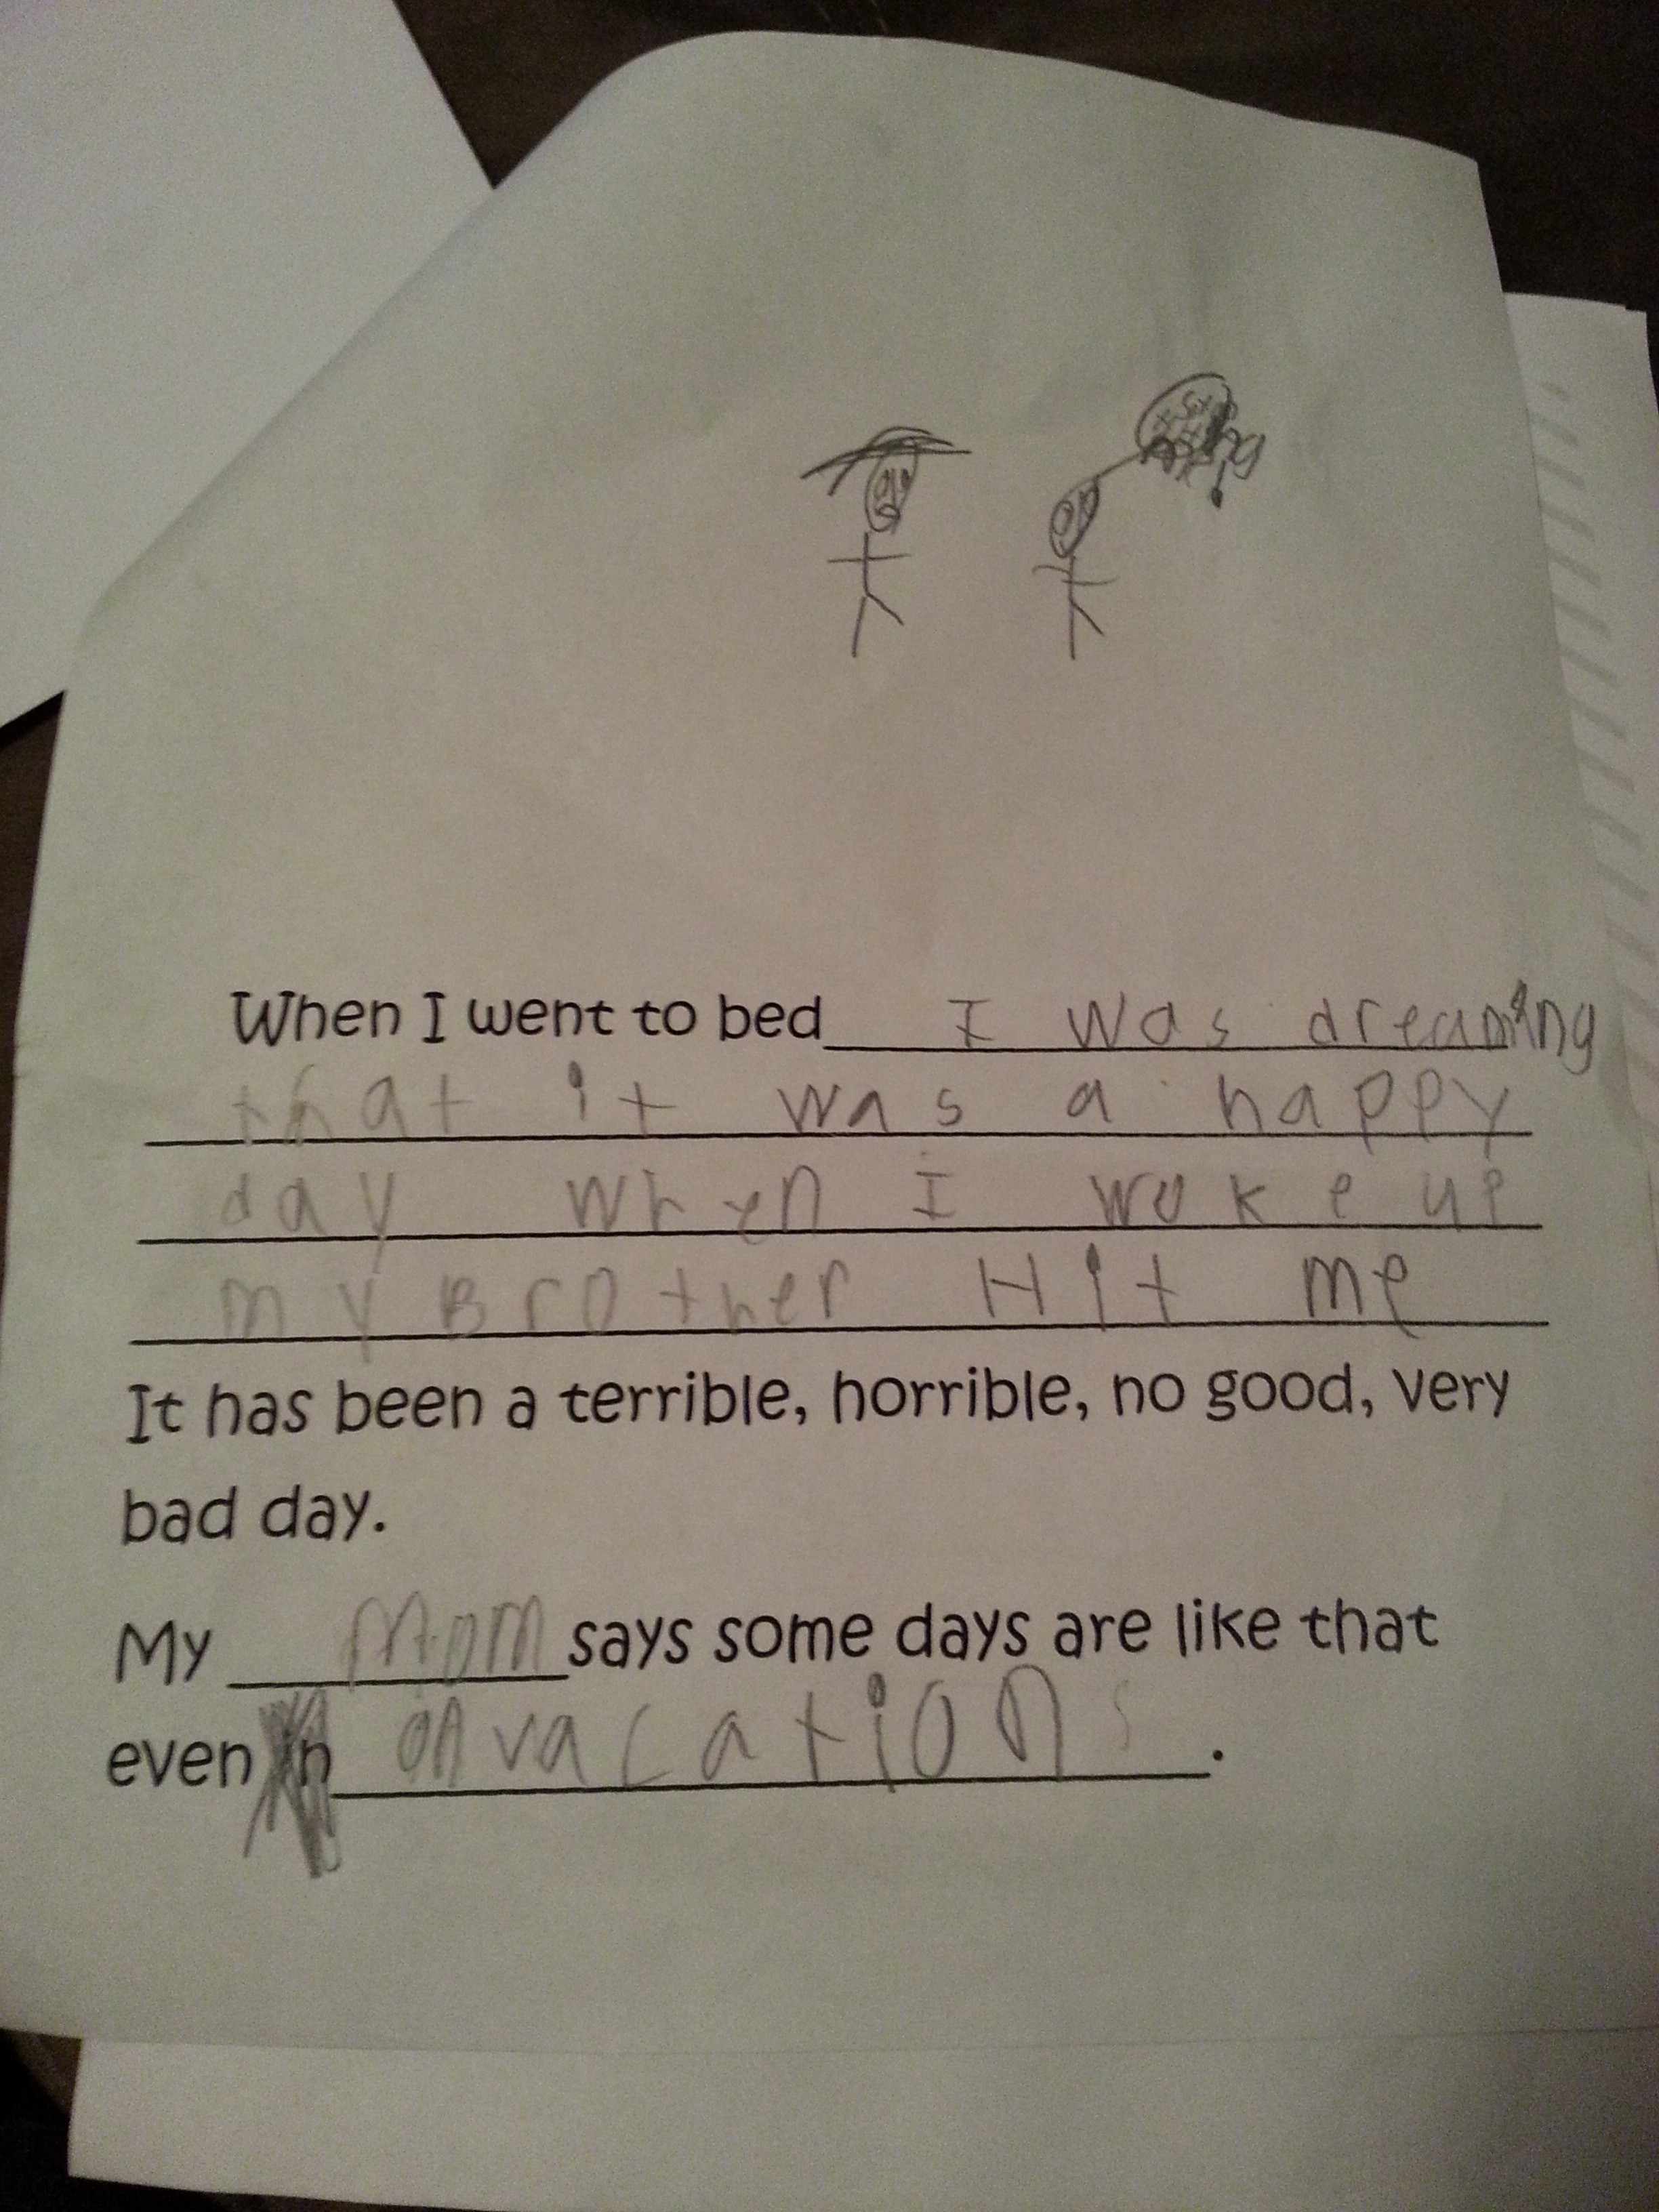 When I went to bed I was dreaming
that it was a happy
day when I woke up
my Brother Hit me
It has been a terrible, horrible, no good, very
bad day.
My Mom says some days are like that
even in on vacations.